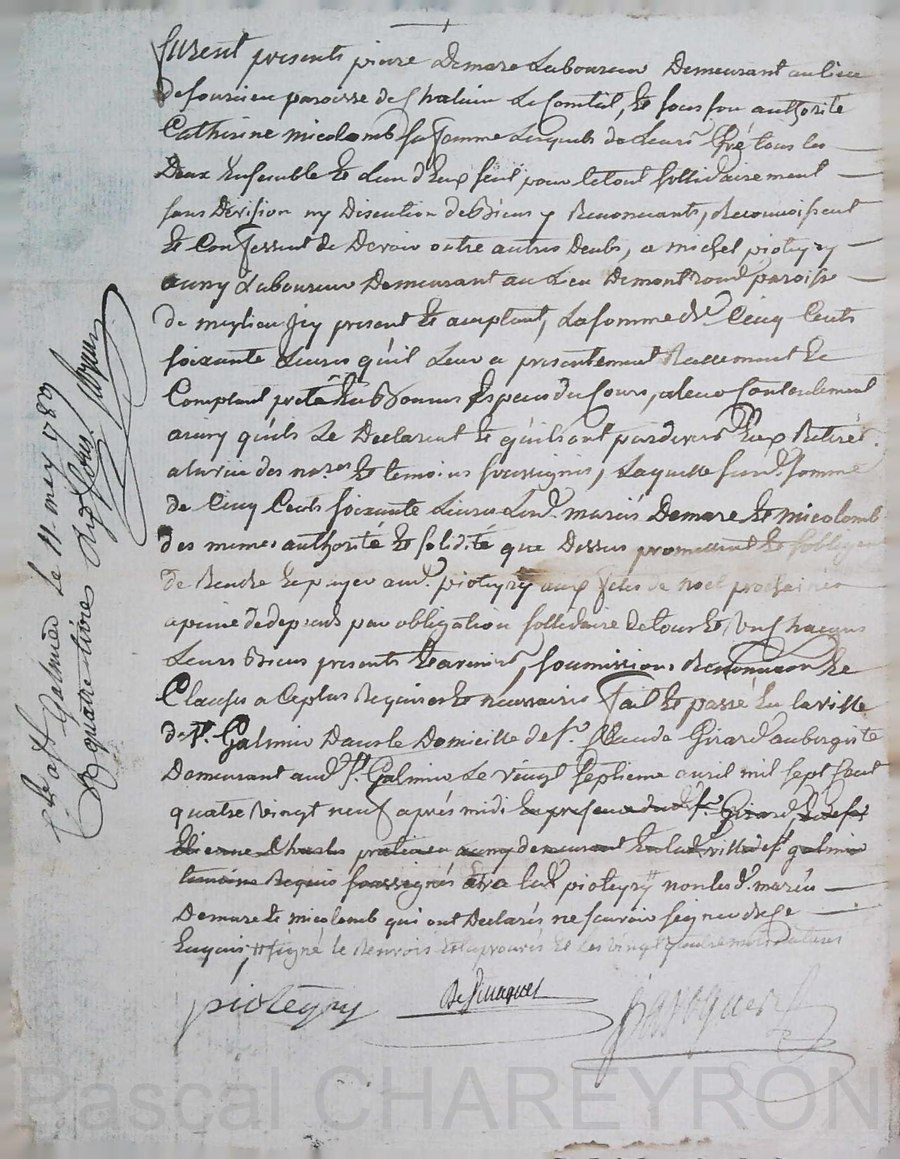 furent presents pierre Demare Laboureur Demeurant au lieu
de fourieu paroisse de Chalain Le Comtal, Et sous son authorité
Catherine micolomb sa femme Lesquels de Leurs gré tous les
Deux Ensemble Et Lun dEux seul pour Le tout sollidairement
sans Division ny Discution de Biens y Renonceants, Reconnoissent
Et Confessent de Devoir outre autres Deubs, a michel pioteyry
aussy Laboureur Demeurant au Lieu De montrond paroisse
de meylieu Jcy present Et acceptant, La somme de Cinq Cents
soixante Livres quil Leur a presentement Reellement Et
Comptant preté En bonnes Espèces du Cours, a leur Contentement
ainsy quils Le Declarent Et quils ont pardevers Eux Retiré
a la vue des nores Et temoins soussignés, Laquelle susd. somme
de Cinq Cents soixante Livres Lesd. mariés Demare Et micolomb
des memes authorité Et solidité que Dessus promettent Et sobligent
de Rendre Et payer aud. pioteyry aux fetes de noel prochaines
a peine de depens par obligation sollidaire de tous Et Uns chacuns
Leurs Biens presents Et avenirs, soumissions Renonciaon Et
Clauses a Ce plus Requises Et necessaires fait Et passé En la ville
de St. Galmier Dans le Domicille de sr. Claude Girard aubergiste
Demeurant aud. St. Galmier Le vingt septieme avril mil sept Cent
quatre vingt neuf après midi En presence dud. sr. Girard, Et de sr.
Etienne Charles praticien aussy demeurant En lad. ville de st galmier
temoins Requis soussignés avec led. pioteyry non lesd. mariés
Demare Et micolomb qui ont Declarés ne scavoir signer de Ce
Enquis, signé le Renvois Est aprouvés Et les vingt quatre mots Ratures
pioteyry
Pascal CHAREYRON
Cle a St Galmier le 11 may 1789
R quatre livres dix sous